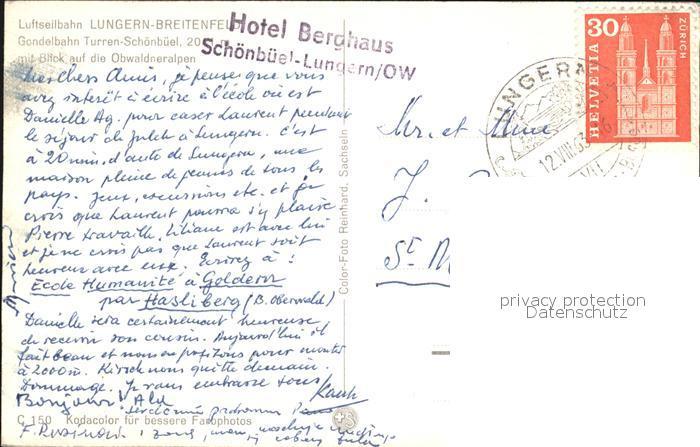 Luftseilbahn LUNGERN-BREITENFELD
Gondelbahn Turren-Schönbüel, 20
mit Blick auf die Obwaldneralpen
Hotel Berghaus
Schönbüel-Lungern/OW
30
HELVETIA
ZÜRICH
LUNGERN
12.VIII.63
Mes chers Amis, je pense que vous
avez intérêt à écrire à l'école où est
Danielle Ag. pour caser Laurent pendant
le séjour de à Lungern. C'est
à 20 min. d'auto de Lungern, une
maison pleine de jeunes de tous les
pays. Jeux, excursions etc. et je
crois que Laurent pourra s'y plaire
Pierre travaille. Liliane est avec lui
et je ne crois pas que Laurent soit
heureux avec eux. Ecrivez à :
Ecole Humanité à Goldern
par Hasliberg (B. Oberwald)
Danielle sera certainement heureuse
de recevoir son cousin. Aujourd'hui il
fait beau et nous en profitons pour monter
à 2000 m. Kirsch nous quitte demain.
Dommage. Je vous embrasse tous
Bonjour!
Mr. et Mme
J.
St M
Color-Foto Reinhard, Sachseln
privacy protection
Datenschutz
C 150 Kodacolor für bessere Farbphotos